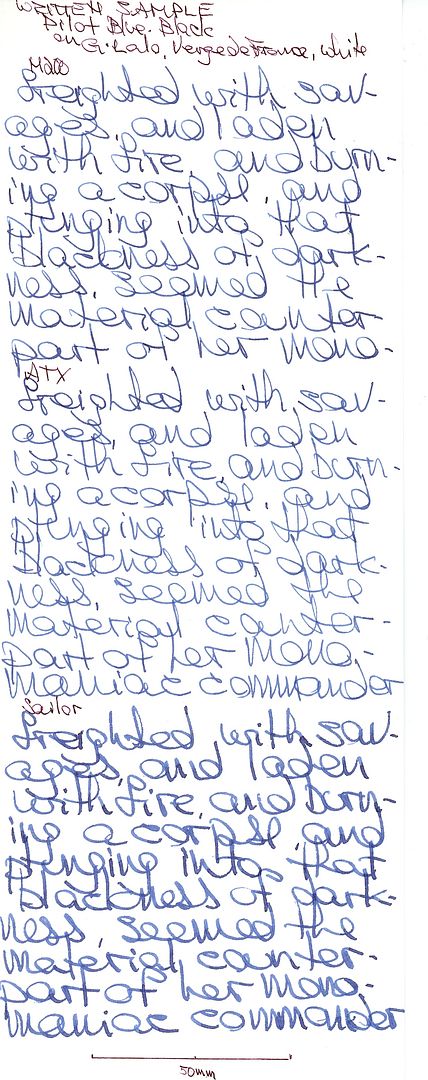 WRITTEN SAMPLE
Pilot Blue-Black
on G. Lalo, Verge de France, white
freighted with sav-
ages, and laden
with fire, and burn-
ing a corpse, and
plunging into that
blackness of dark-
ness, seemed the
material counter-
part of her mono-
ATX
freighted with sav-
ages, and laden
with fire, and burn-
ing a corpse, and
plunging into that
blackness of dark-
ness, seemed the
material counter-
part of her mono-
maniac commander
Sailor
freighted with sav-
ages, and laden
with fire, and burn-
ing a corpse, and
plunging into that
blackness of dark-
ness, seemed the
material counter-
part of her mono-
maniac commander
50mm